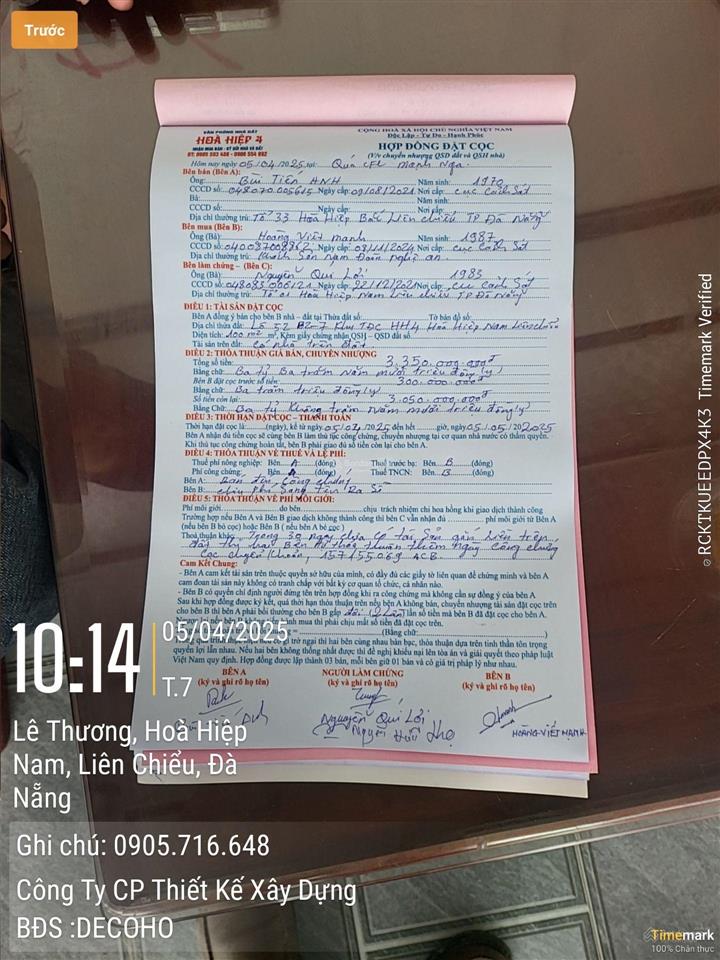 Trước
VĂN PHÒNG NHÀ ĐẤT
HOÀ HIỆP 4
NHẬN MUA BÁN - KÝ GỬI NHÀ VÀ ĐẤT
CỘNG HOÀ XÃ HỘI CHỦ NGHĨA VIỆT NAM
Độc Lập - Tự Do - Hạnh Phúc
HỢP ĐỒNG ĐẶT CỌC
(V/v chuyển nhượng QSD đất và QSH nhà)
Hôm nay ngày 05/04/2025 tại: Quán cà Mạnh Nga.
Bên bán (Bên A):
Ông: Bùi Tiến Anh Năm sinh: 1970
CCCD số: 048070005615 Ngày cấp: 09/08/2021 Nơi cấp: cục Cảnh Sát
Bà: Năm sinh:
CCCD số: Ngày cấp: Nơi cấp:
Địa chỉ thường trú: Tổ 33 Hoà Hiệp Bắc Liên Chiểu TP Đà Nẵng
Bên mua (Bên B):
Ông (Bà): Hoàng Viết Mạnh Năm sinh: 1987
CCCD số: Ngày cấp: 03/11/2024 Nơi cấp: cục Cảnh Sát
Địa chỉ thường trú: Khánh Sơn Nam Đàn Nghệ an
Bên làm chứng - (Bên C):
Ông (Bà): Nguyễn Quí Lời Năm sinh: 1983
CCCD số: 048083006121 Ngày cấp: 22/12/2021 Nơi cấp: cục Cảnh Sát
Địa chỉ thường trú: Tổ 01 Hoà Hiệp Nam Liên Chiểu TP Đà Nẵng
ĐIỀU 1: TÀI SẢN ĐẶT CỌC
Bên A đồng ý bán cho bên B nhà - đất tại Thửa đất số: Tờ bản đồ số:
Địa chỉ thửa đất: Lô 52 B2-7 Khu TĐC HH4 Hoà Hiệp Nam Liên Chiểu
Diện tích: 100 m2, Kèm giấy chứng nhận QSH - QSD đất số:
Tài sản trên đất: Có nhà trên đất
ĐIỀU 2: THỎA THUẬN GIÁ BÁN, CHUYỂN NHƯỢNG
Tổng số tiền: 3.350.000.000đ
Bằng chữ: Ba tỷ Ba trăm năm mươi triệu đồng ly)
Bên B đặt cọc trước số tiền: 300.000.000đ
Bằng chữ: Ba trăm triệu đồng ly)
Số tiền còn lại: 3.050.000.000đ
Bằng chữ: Ba tỷ Không trăm năm mươi triệu đồng ly
ĐIỀU 3: THỜI HẠN ĐẶT CỌC - THANH TOÁN
Thời hạn đặt cọc là: (ngày), kể từ ngày 05/04/2025 đến hết giờ, ngày 05/05/2025
Bên A nhận đủ tiền cọc sẽ cùng bên B làm thủ tục công chứng, chuyển nhượng tại cơ quan nhà nước có thẩm quyền.
Khi thủ tục công chứng hoàn tất, bên B phải giao đủ số tiền còn lại cho bên A.
ĐIỀU 4: THỎA THUẬN VỀ THUẾ VÀ LỆ PHÍ:
Thuế phi nông nghiệp: Bên A (đóng) Thuế trước bạ: Bên B (đóng)
Phí công chứng: Bên A (đóng) Thuế TNCN: Bên B (đóng)
Bên A: Bán đến Công chứng
Bên B: chịu Phí Sang Tên Ra Sổ
ĐIỀU 5: THỎA THUẬN VỀ PHÍ MÔI GIỚI:
Phí môi giới do bên chịu trách nhiệm chi hoa hồng khi giao dịch thành công
Trường hợp nếu Bên A và Bên B giao dịch không thành công thì bên C vẫn nhận đủ phí môi giới từ Bên A
(nếu bên B bỏ cọc) hoặc Bên B ( nếu bên A bẻ cọc )
Thoả thuận khác: Trong 30 ngày chưa có tài sản gắn liền trên
đất thì hai Bên tự thoả thuận thêm ngày Công chứng
Cọc chuyển khoản, 157155069 ACB.
Cam Kết Chung:
- Bên A cam kết tài sản trên thuộc quyền sở hữu của mình, có đầy đủ các giấy tờ liên quan để chứng minh và bên A
cam đoan tài sản này không có tranh chấp với bất kỳ cơ quan tổ chức, cá nhân nào.
- Bên B có quyền chỉ định người đứng tên trên hợp đồng khi ra công chứng mà không cần sự đồng ý của bên A
Sau khi hợp đồng được ký kết, quá thời hạn thỏa thuận trên nếu bên A không bán, chuyển nhượng tài sản đặt cọc trên
cho bên B thì bên A phải bồi thường cho bên B gấp đôi (2 lần) lần số tiền mà bên B đã đặt cọc cho bên A.
thì phải chịu mất số tiền đã đặt cọc trên.
(Bằng chữ:
có gì trở ngại thì hai bên cùng nhau bàn bạc, thỏa thuận dựa trên tinh thần tôn trọng
quyền lợi lẫn nhau. Nếu hai bên không thống nhất được thì đề nghị khiếu nại lên tòa án và giải quyết theo pháp luật
Việt Nam quy định. Hợp đồng được lập thành 03 bản, mỗi bên giữ 01 bản và có giá trị pháp lý như nhau.
BÊN A NGƯỜI LÀM CHỨNG BÊN B
(ký và ghi rõ họ tên) (ký và ghi rõ họ tên) (ký và ghi rõ họ tên)
Nguyễn Quí Lời
Nguyễn Hữu Thọ
HOÀNG VIẾT MẠNH
10:14
05/04/2025
T.7
Lê Thương, Hoà Hiệp
Nam, Liên Chiểu, Đà
Nẵng
Ghi chú: 0905.716.648
Công Ty CP Thiết Kế Xây Dựng
BĐS :DECOHO
RCKTKUEEDPX4K3 Timemark Verified
Timemark
100% Chân thực